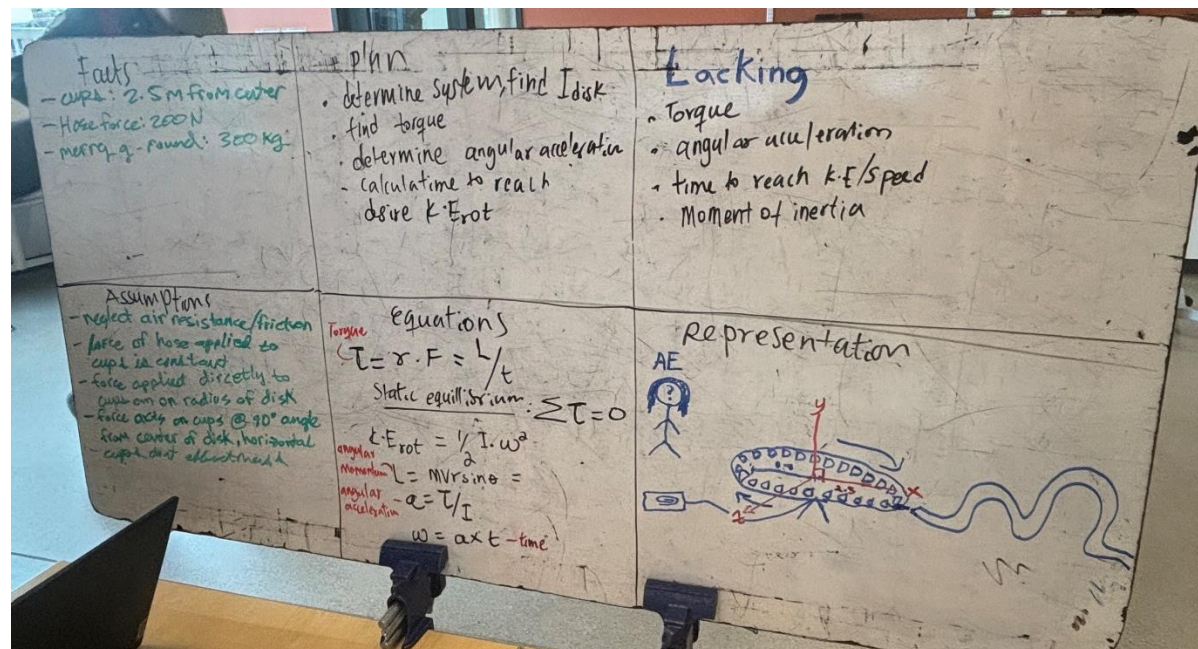 Facts
- cups: 2.5m from center
- Hose force: 200N
- merry-g-round: 300 kg
plan
• determine system, find Idisk
• find torque
• determine angular acceleration
- calculatime to reach
desire K.Erot
Lacking
• Torque
• angular aculeration
• time to reach K.E/speed
• Moment of inertia
Assumptions
- neglect air resistance/friction
- force of hose applied to
cups is constant
- force applied directly to
cups on radius of disk
- force acts on cups @ 90° angle
from center of disk, horizontal
- cups dont
equations
Torque
τ = r · F = L/t
Static equillibrium: Στ=0
K.Erot = 1/2 I · ω²
angular
momentum L = mvrsinθ =
angular
acceleration - a = τ/I
ω = a x t - time
Representation
AE
?
y
x
z
2.5